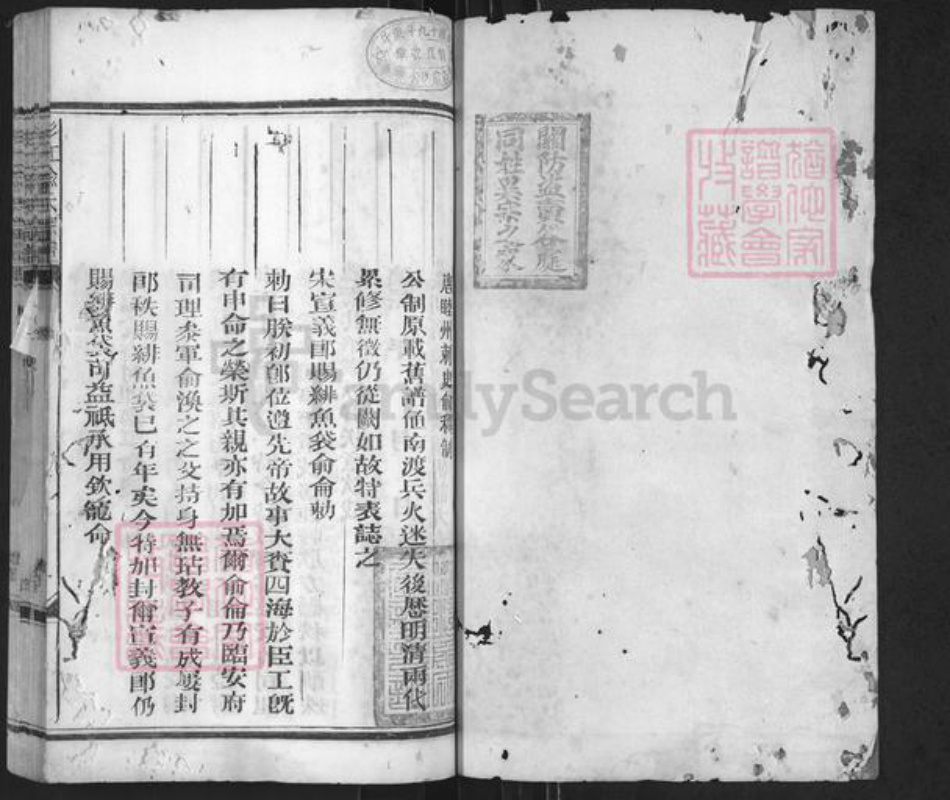 關防盜賣公庭
同姓異宗之家
猶他家
譜學會
收藏
唐睦州刺史俞稠制
公制原載舊譜值南渡兵火迷失後歷明清兩代
累修無徵仍從闕如故特表誌之
宋宣義郎賜緋魚袋俞倫勅
勅曰朕初卽位遵先帝故事大賚四海於臣工旣
有申命之榮斯其親亦有加焉爾俞倫乃臨安府
司理叅軍俞渙之之父持身無玷教子有成屢封
郎秩賜緋魚袋已有年矣今特加封爾宣義郎仍
賜緋魚袋可益祗承用欽寵命
FamilySearch